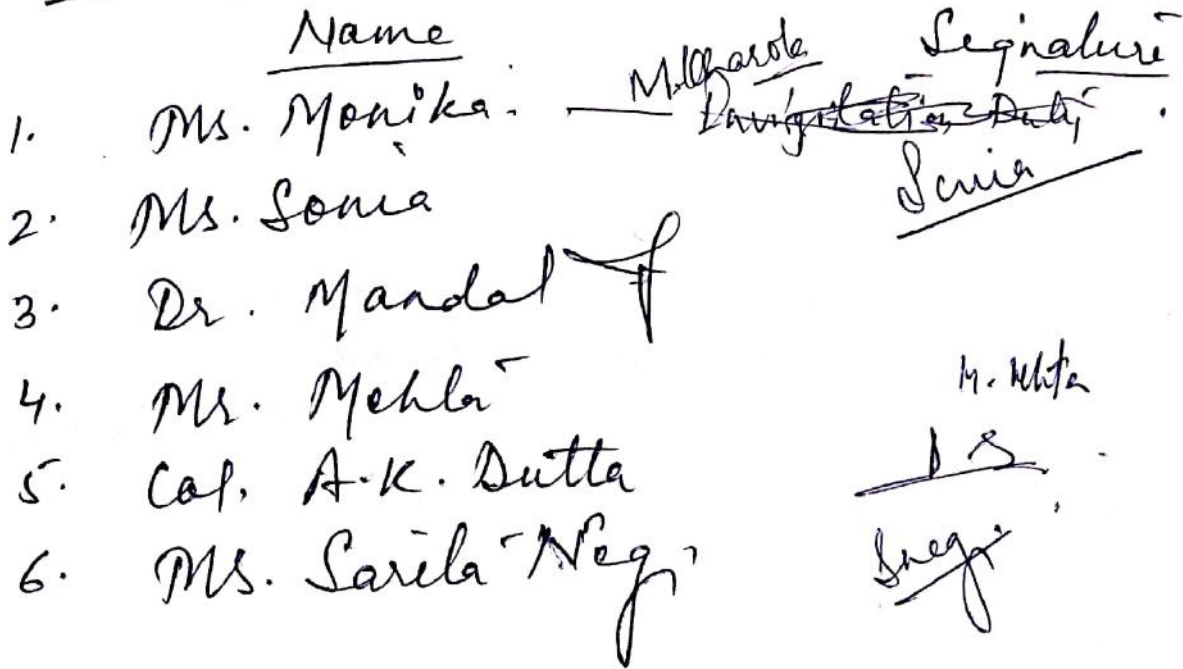 Name Signature
1. Ms. Monika. — M. Kharola Invigilation Duty.
2. Ms. Sonia Sonia
3. Dr. Mandal
4. Mr. Mehta M. Mehta
5. Col. A.K. Dutta
6. Ms. Sarita Negi SNegi